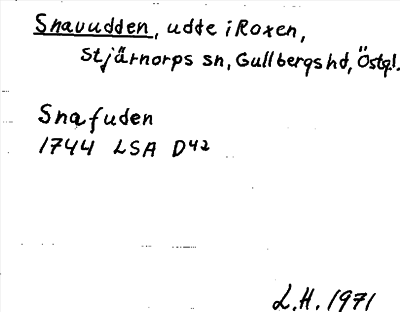 Snavudden, udde i Roxen,
Stjärnorps sn, Gullbergs hd, Östgl.
Snafuden
1744 LSA D42
L.H. 1971